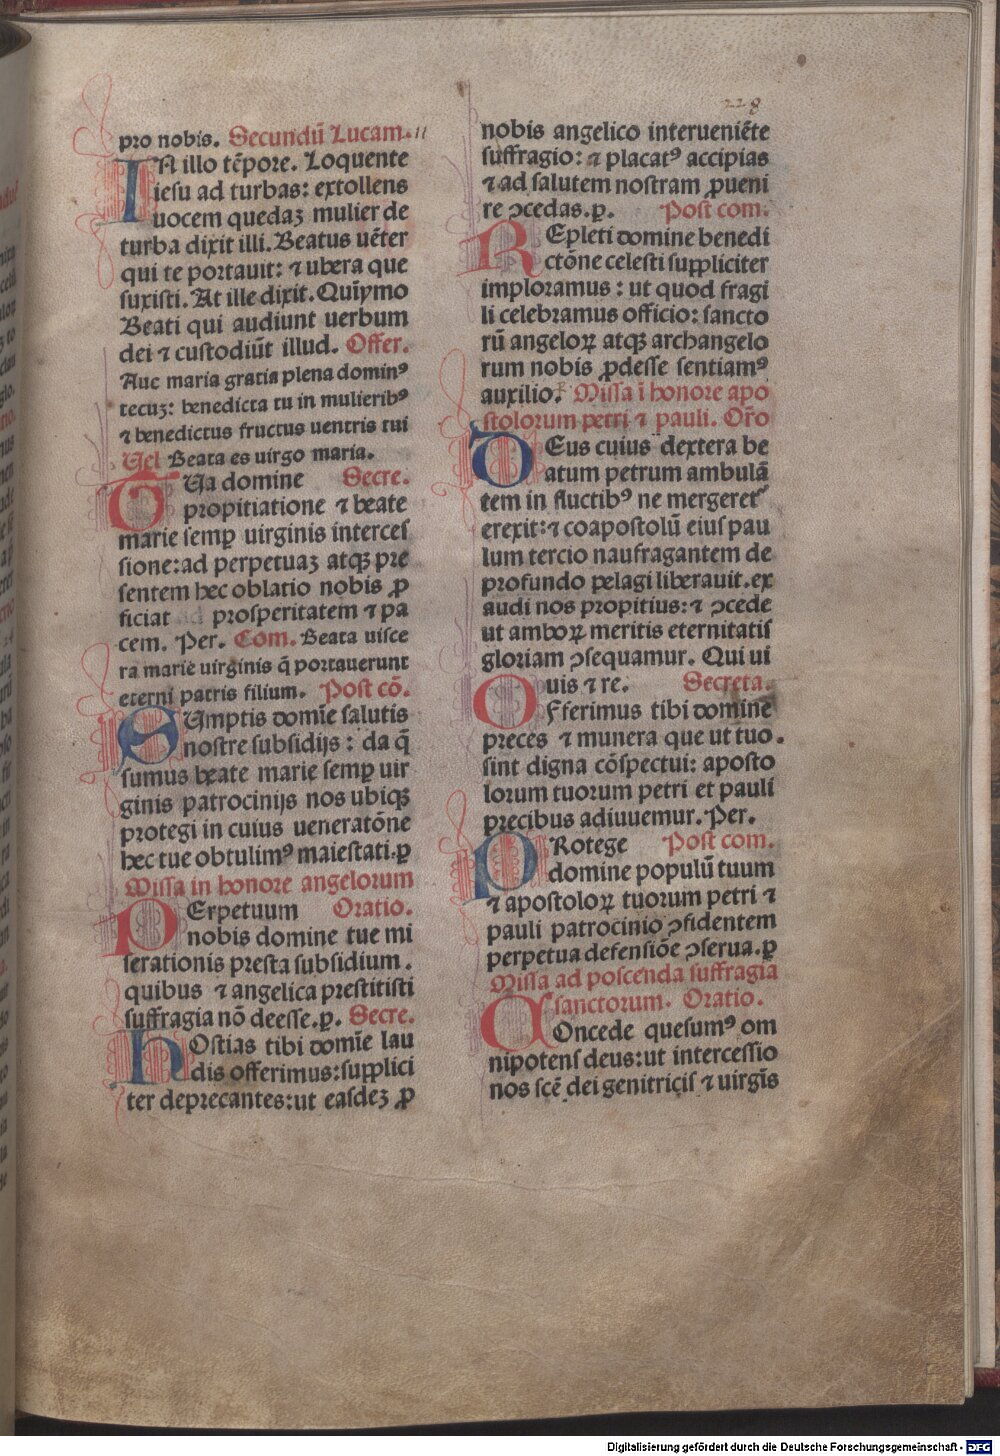 228
pro nobis. Secundū Lucam.
IN illo tēpore. Loquente
iesu ad turbas: extollens
uocem quedaʒ mulier de
turba dixit illi. Beatus uēter
qui te portauit: ⁊ ubera que
suxisti. At ille dixit. Quīymo
Beati qui audiunt uerbum
dei ⁊ custodiūt illud. Offer.
Aue maria gratia plena dominꝰ
tecuʒ: benedicta tu in mulieribꝰ
⁊ benedictus fructus uentris tui
Uel Beata es uirgo maria.
TUa domine Secre.
propitiatione ⁊ beate
marie semꝑ uirginis interceſ
ſione: ad perpetuaʒ atqꝫ pre
ſentem hec oblatio nobis ꝓ
ficiat ad proſperitatem ⁊ pa
cem. Per. Com. Beata uiſce
ra marie uirginis q̄ portauerunt
eterni patris filium. Post cō.
SUmptis domīe ſalutis
noſtre ſubſidijs: da q̄
ſumus beate marie ſemꝑ uir
ginis patrocinijs nos ubiqꝫ
protegi in cuius ueneratōne
hec tue obtulimꝰ maieſtati.ꝑ
Miſſa in honore angelorum
PErpetuum Oratio.
nobis domine tue mi
ſerationis preſta ſubſidium.
quibus ⁊ angelica preſtitiſti
ſuffragia nō deeſſe.ꝑ. Secre.
HOſtias tibi domīe lau
dis offerimus: ſuppliци
ter deprecantes: ut eaſdeʒ ꝓ
nobis angelico interueniēte
ſuffragio: ⁊ placatꝰ accipias
⁊ ad ſalutem noſtram ꝓueni
re ꝯcedas.ꝑ. Poſt com.
REpleti domine benedi
ctōne celeſti ſuppliciter
imploramus: ut quod fragi
li celebramus officio: ſancto
rū angeloꝝ atqꝫ archangelo
rum nobis ꝓdeſſe ſentiamꝰ
auxilio. Miſſa ī honore apo
ſtolorum petri ⁊ pauli. Or̄o
DEus cuius dextera be
atum petrum ambulā
tem in fluctibꝰ ne mergeret
erexit: ⁊ coapoſtolū eiuſ pau
lum tercio naufragantem de
profundo pelagi liberauit. ex
audi nos propitius: ⁊ ꝯcede
ut amboꝝ meritis eternitatiſ
gloriam ꝯſequamur. Qui ui
uis ⁊ re. Secreta.
OFferimus tibi domine
preces ⁊ munera que ut tuo.
ſint digna cōſpectui: apoſto
lorum tuorum petri et pauli
precibus adiuuemur. Per.
PRotege Poſt com.
domine populū tuum
⁊ apoſtoloꝝ tuorum petri ⁊
pauli patrocinio ꝯfidentem
perpetua defenſiōe ꝯſerua.ꝑ
Miſſa ad poſcenda ſuffragia
ſanctorum. Oratio.
COncede queſumꝰ om
nipotenſ deus: ut interceſſio
nos ſcē dei genitriciſ ⁊ uirgīs
Digitalisierung gefördert durch die Deutsche Forschungsgemeinschaft - DFG